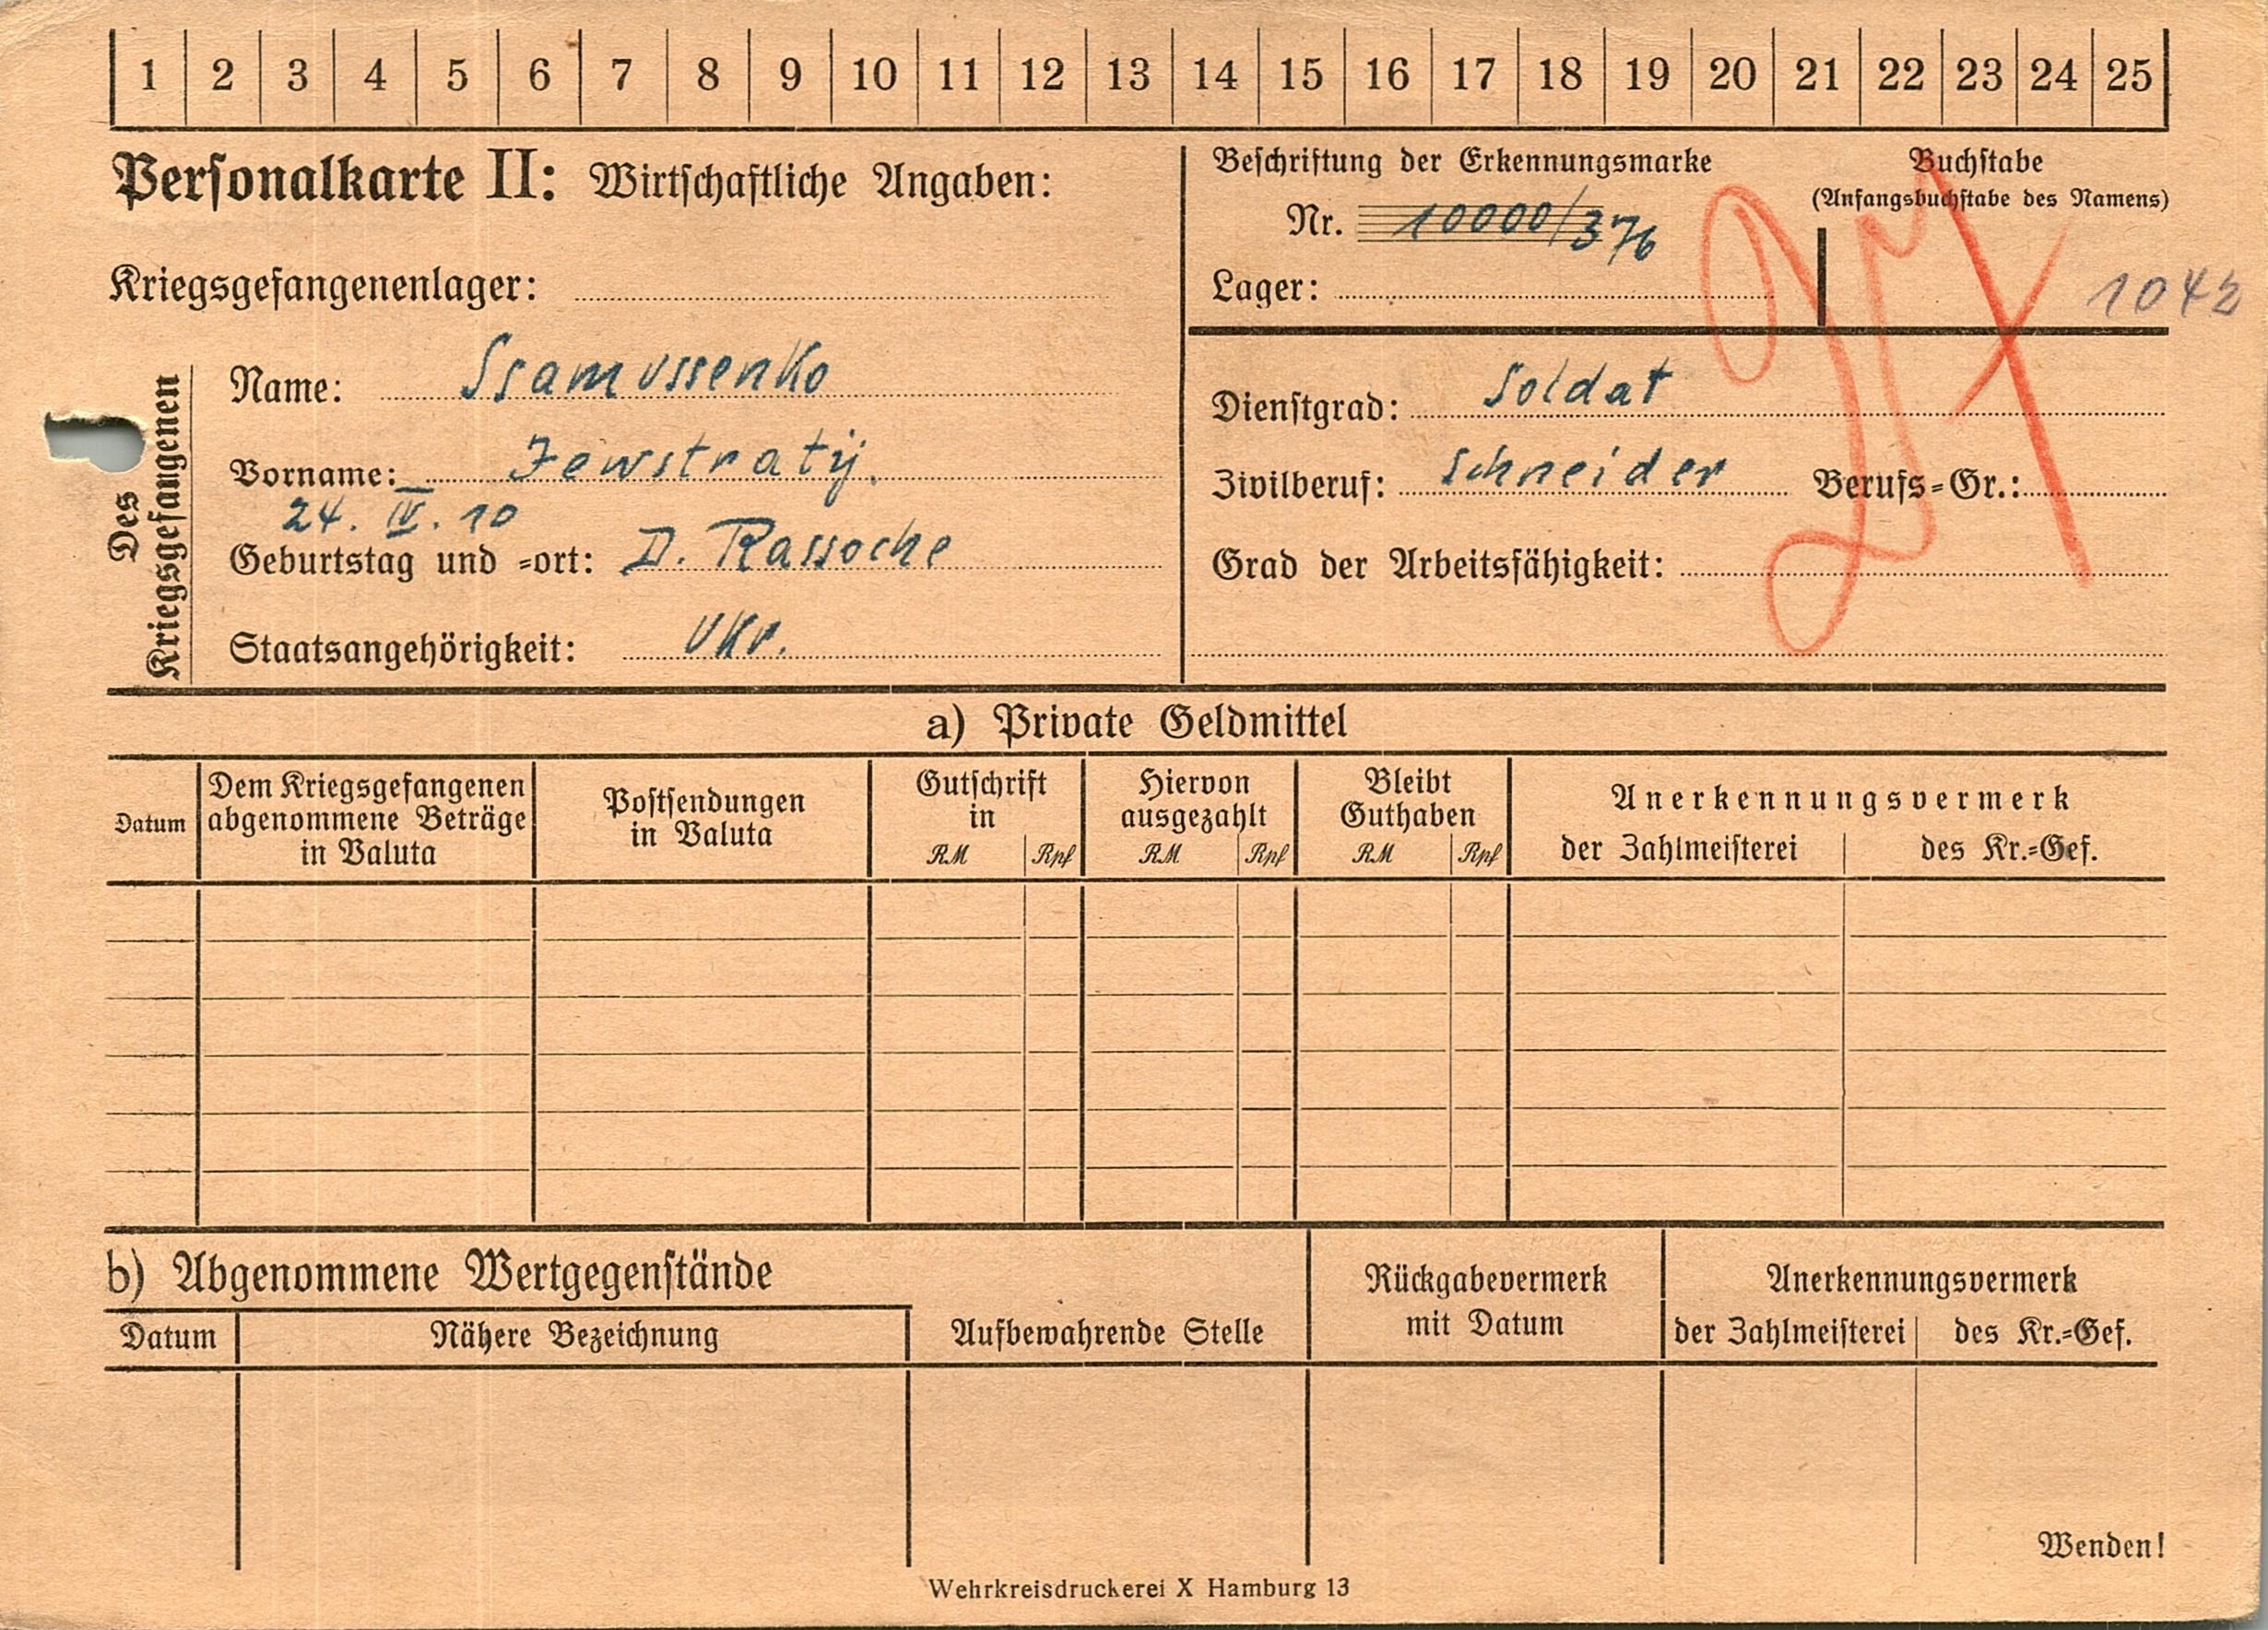 1 2 3 4 5 6 7 8 9 10 11 12 13 14 15 16 17 18 19 20 21 22 23 24 25
Personalkarte II: Wirtschaftliche Angaben:
Kriegsgefangenenlager:
Beschriftung der Erkennungsmarke
Nr. 10000/376
Lager:
Buchstabe
(Anfangsbuchstabe des Namens)
1042
Des Kriegsgefangenen
Name: Ssamussenko
Vorname: Jewstratij.
24. IV. 10
Geburtstag und =ort: D. Rassoche
Staatsangehörigkeit: Ukr.
Dienstgrad: Soldat
Zivilberuf: Schneider Berufs=Gr.:
Grad der Arbeitsfähigkeit:
a) Private Geldmittel
Datum
Dem Kriegsgefangenen
abgenommene Beträge
in Valuta
Postsendungen
in Valuta
Gutschrift
in
RM Rpf
Hiervon
ausgezahlt
RM Rpf
Bleibt
Guthaben
RM Rpf
Anerkennungsvermerk
der Zahlmeisterei des Kr.=Gef.
b) Abgenommene Wertgegenstände
Datum Nähere Bezeichnung
Aufbewahrende Stelle
Rückgabevermerk
mit Datum
Anerkennungsvermerk
der Zahlmeisterei des Kr.=Gef.
Wenden!
Wehrkreisdruckerei X Hamburg 13